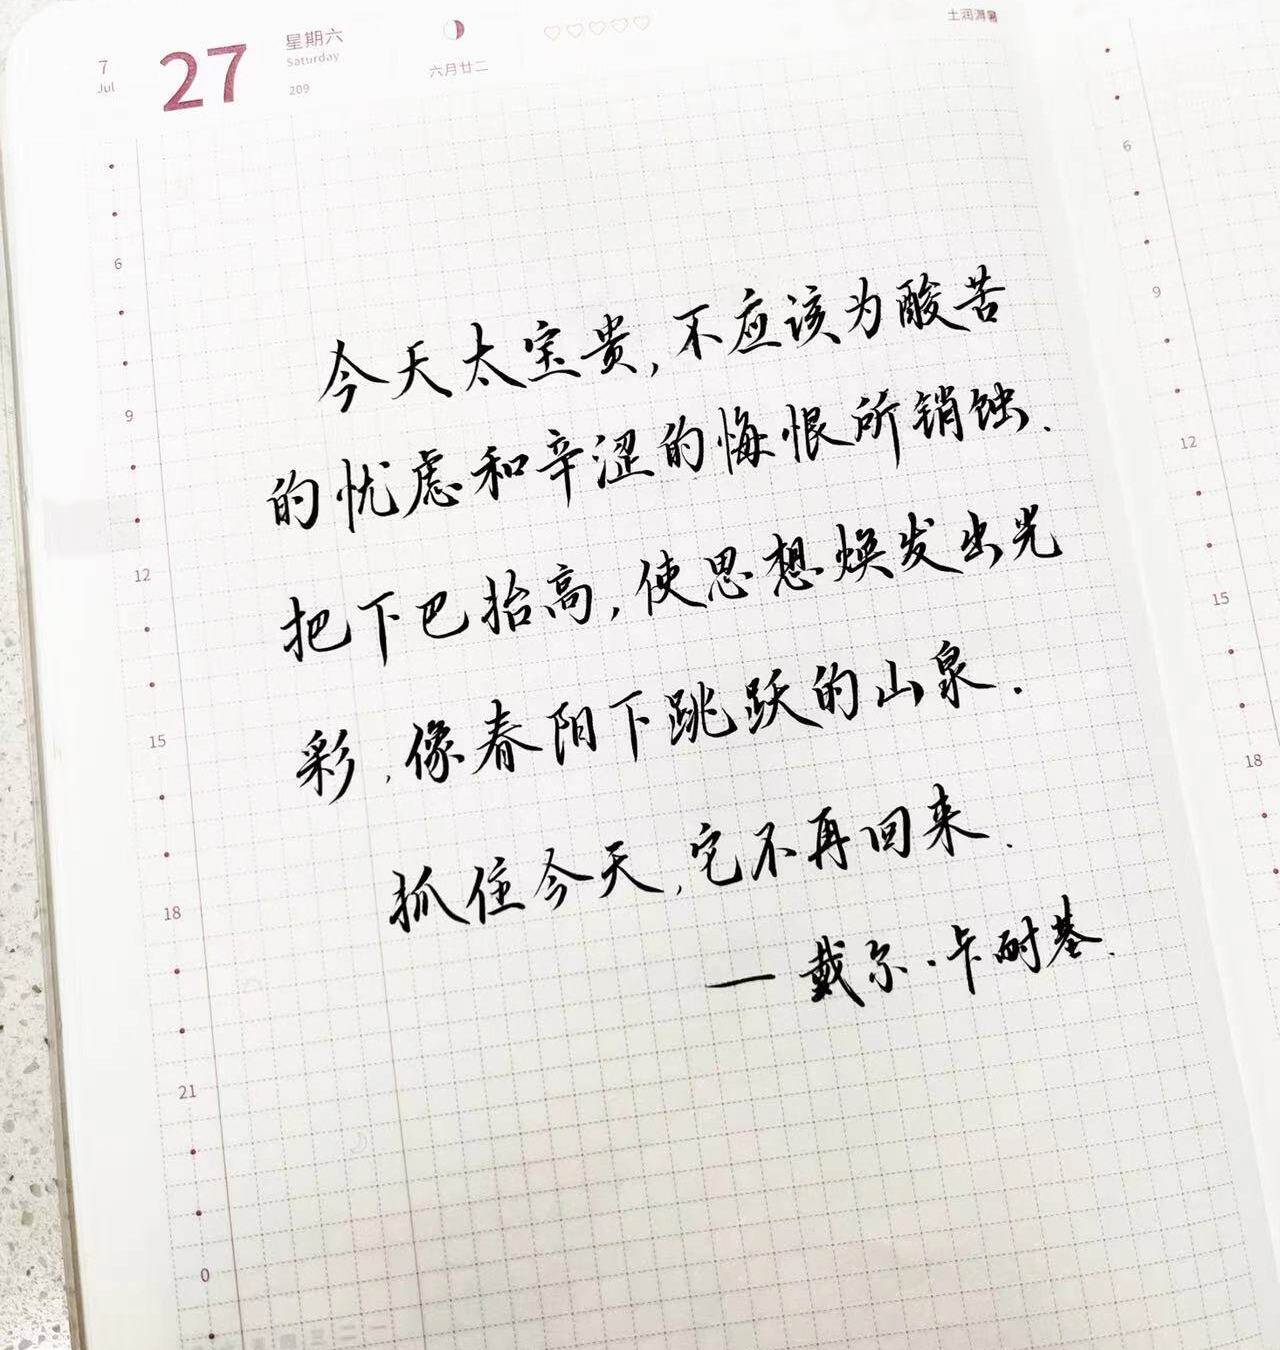 7
Jul
27
星期六
Saturday
209
六月廿二
土润溽暑
今天太宝贵,不应该为酸苦
的忧虑和辛涩的悔恨所销蚀.
把下巴抬高,使思想焕发出光
彩,像春阳下跳跃的山泉.
抓住今天,它不再回来.
一戴尔·卡耐基.
6
9
12
15
18
21
0
6
9
12
15
18